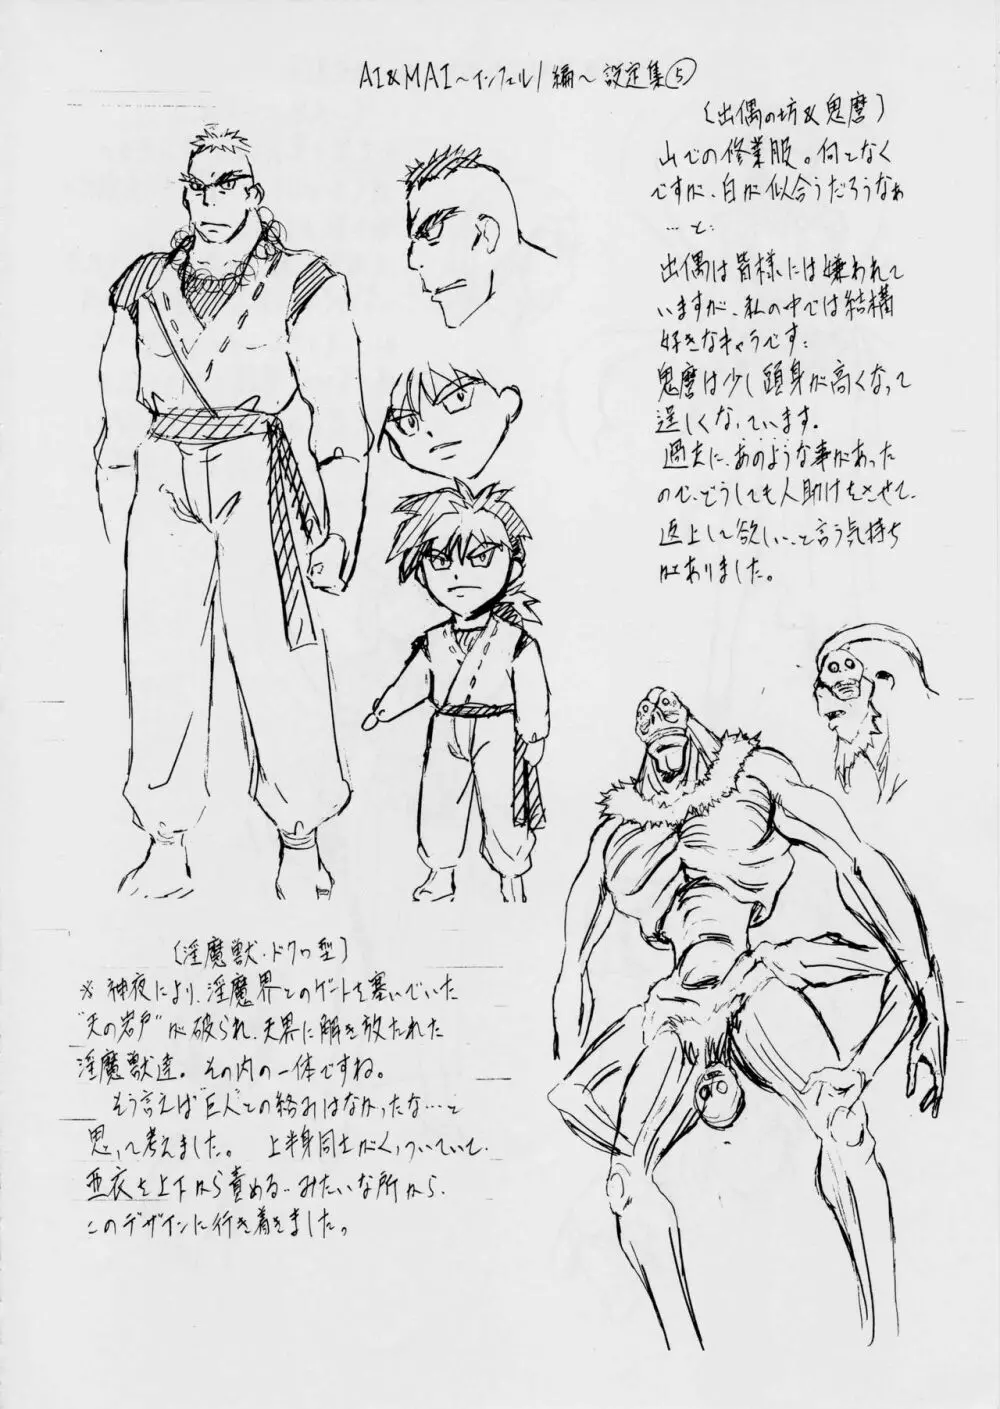 AI&MAI～インフェルノ編～ 設定集⑤
〔出偶の坊&鬼麿〕
山での修業服。何となく
ですが、白が似合うだろうなぁ
…と。
出偶は皆様には嫌われて
いますが、私の中では結構
好きなキャラです。
鬼麿は少し頭身が高くなって
逞しくなっています。
過去に、あのような事があった
ので、どうしても人助けをさせて、
返上して欲しい、と言う気持ち
はありました。
〔淫魔獣・ドクロ型〕
※神夜により、淫魔界とのゲートを塞いでいた
"天の岩戸"が破られ、天界に解き放たれた
淫魔獣達。その内の一体ですね。
そう言えば"巨人"との絡みはなかったな…と
思って考えました。 上半身同士がくっついていて、
亜衣を上下から責める…みたいな所から、
このデザインに行き着きました。